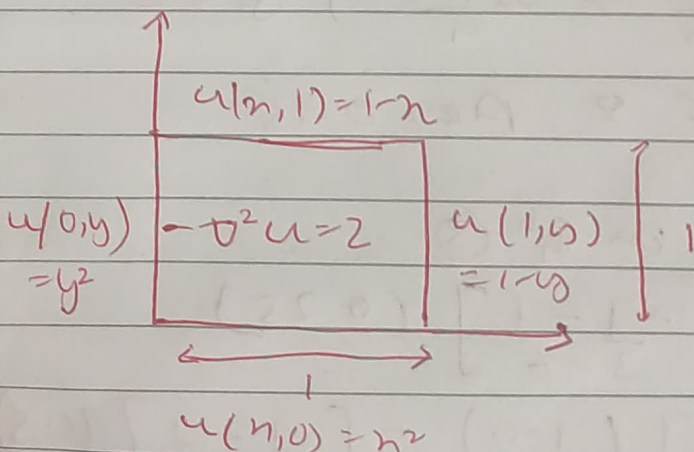 u(x,1)=1-x
u(0,y)
=y²
-∇²u=2
u(1,y)
=1-y
1
1
u(x,0)=x²